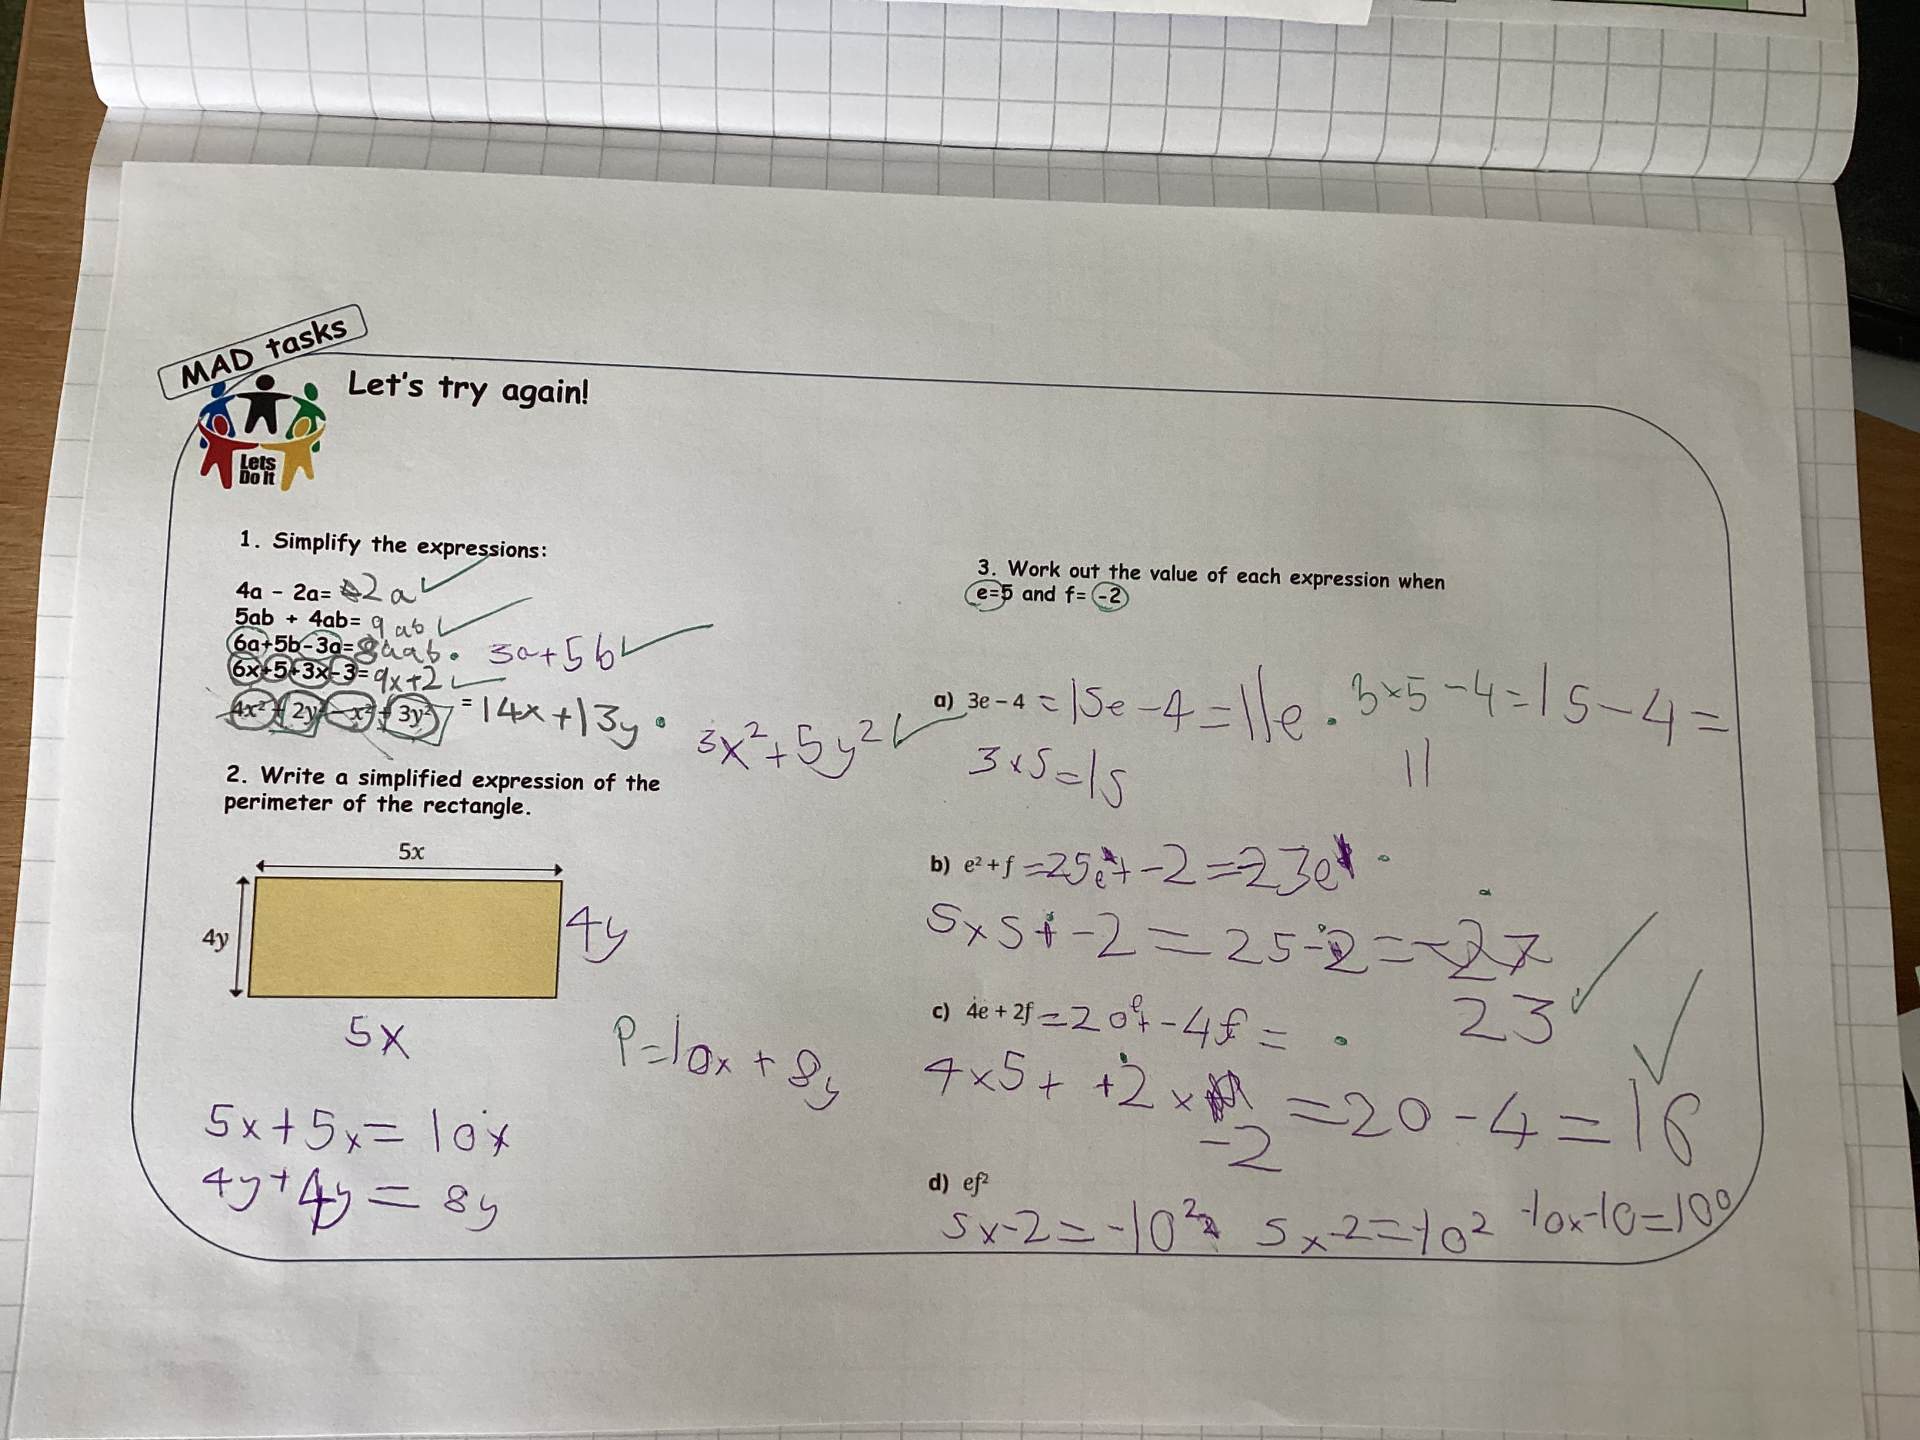 MAD tasks
Let's try again!
Lets
Do It
1. Simplify the expressions:
4a - 2a= 2a
5ab + 4ab= 9ab
6a+5b-3a= 8aab. 3a+5b
6x+5+3x-3= 9x+2
4x² + 2y² - x² + 3y² = 14x+13y. 3x²+5y²
2. Write a simplified expression of the
perimeter of the rectangle.
5x
4y
4y
5x
P=10x + 8y
5x+5x= 10x
4y+4y= 8y
3. Work out the value of each expression when
e=5 and f= -2
a) 3e - 4 = 15e-4=11e. 3×5-4=15-4=
3×5=15
11
b) e² + f =25e+-2=23e
5×5+-2=25-2=-27
23
c) 4e + 2f =20e+-4f=
4×5+ +2×
-2
=20-4=16
d) ef²
5×-2=-10² 5×-2=-10² -10x-10=100